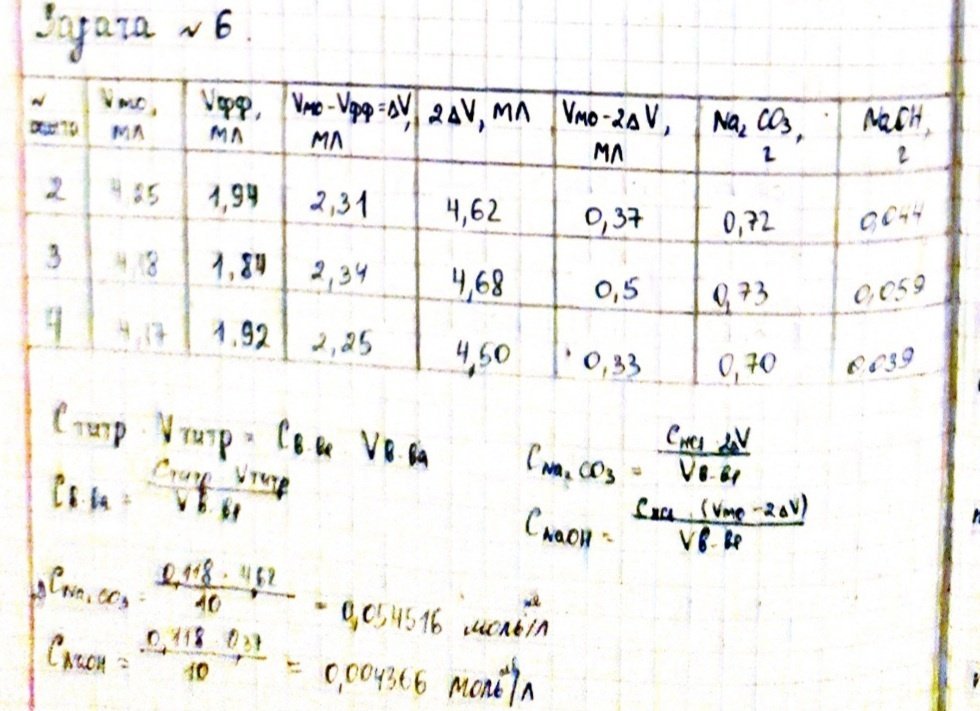 Задача № 6.
№ опыта | Vмо, мл | Vфф, мл | Vмо-Vфф=ΔV, мл | 2ΔV, мл | Vмо-2ΔV, мл | Na₂CO₃, г | NaOH, г
2 | 4,25 | 1,94 | 2,31 | 4,62 | 0,37 | 0,72 | 0,044
3 | 4,18 | 1,84 | 2,34 | 4,68 | 0,5 | 0,73 | 0,059
4 | 4,17 | 1.92 | 2,25 | 4,50 | 0,33 | 0,70 | 0.039
Cтитр · Vтитр = Cв-ва Vв-ва
Cв-ва = Cтитр Vтитр / Vв-ва
CNa₂CO₃ = CHCl · 2ΔV / Vв-ва
CNaOH = CHCl · (Vмо - 2ΔV) / Vв-ва
CNa₂CO₃ = 0,118 · 4,62 / 10 = 0,054516 моль/л
CNaOH = 0,118 · 0,37 / 10 = 0,004366 моль/л